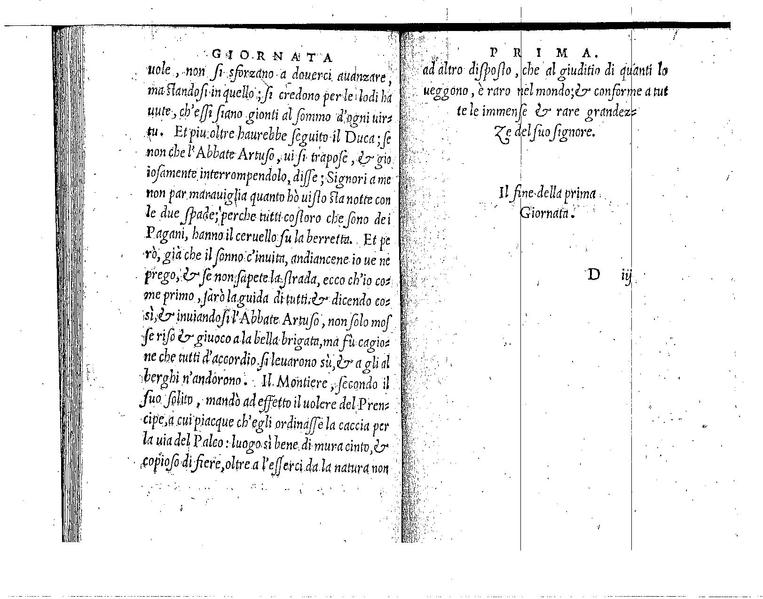 GIORNATA
uole, non si sforzano a douerci auanzare,
ma standosi in quello; si credono per le lodi ha
uute, ch'essi siano gionti al sommo d'ogni uir-
tu. Et piu oltre haurebbe seguito il Duca; se
non che l'Abbate Artuso, ui si trapose, & gio
iosamente interrompendolo, disse; Signori a me
non par marauiglia quanto hò uisto sta notte con
le due spade; perche tutti costoro che sono dei
Pagani, hanno il ceruello su la berretta. Et pe
rò, già che il sonno c'inuita, andiancene io ue ne
prego; & se non sapete la strada, ecco ch'io co=
me primo, sarò la guida di tutti: & dicendo co=
sì, & inuiandosi l'Abbate Artuso, non solo mos
se riso & giuoco a la bella brigata, ma fù cagio=
ne che tutti d'accordio si leuarono sù, & a gli al
berghi n'andorono. Il Montiere, secondo il
suo solito, mandò ad effetto il uolere del Pren=
cipe, a cui piacque ch'egli ordinasse la caccia per
la uia del Palco: luogo sì bene di mura cinto, &
copioso di fiere, oltre a l'esserci da la natura non
PRIMA.
ad altro disposto, che al giuditio di quanti lo
ueggono, è raro nel mondo; & conforme a tut
te le immense & rare grandez=
Ze del suo signore.
Il fine della prima
Giornata.
D iij